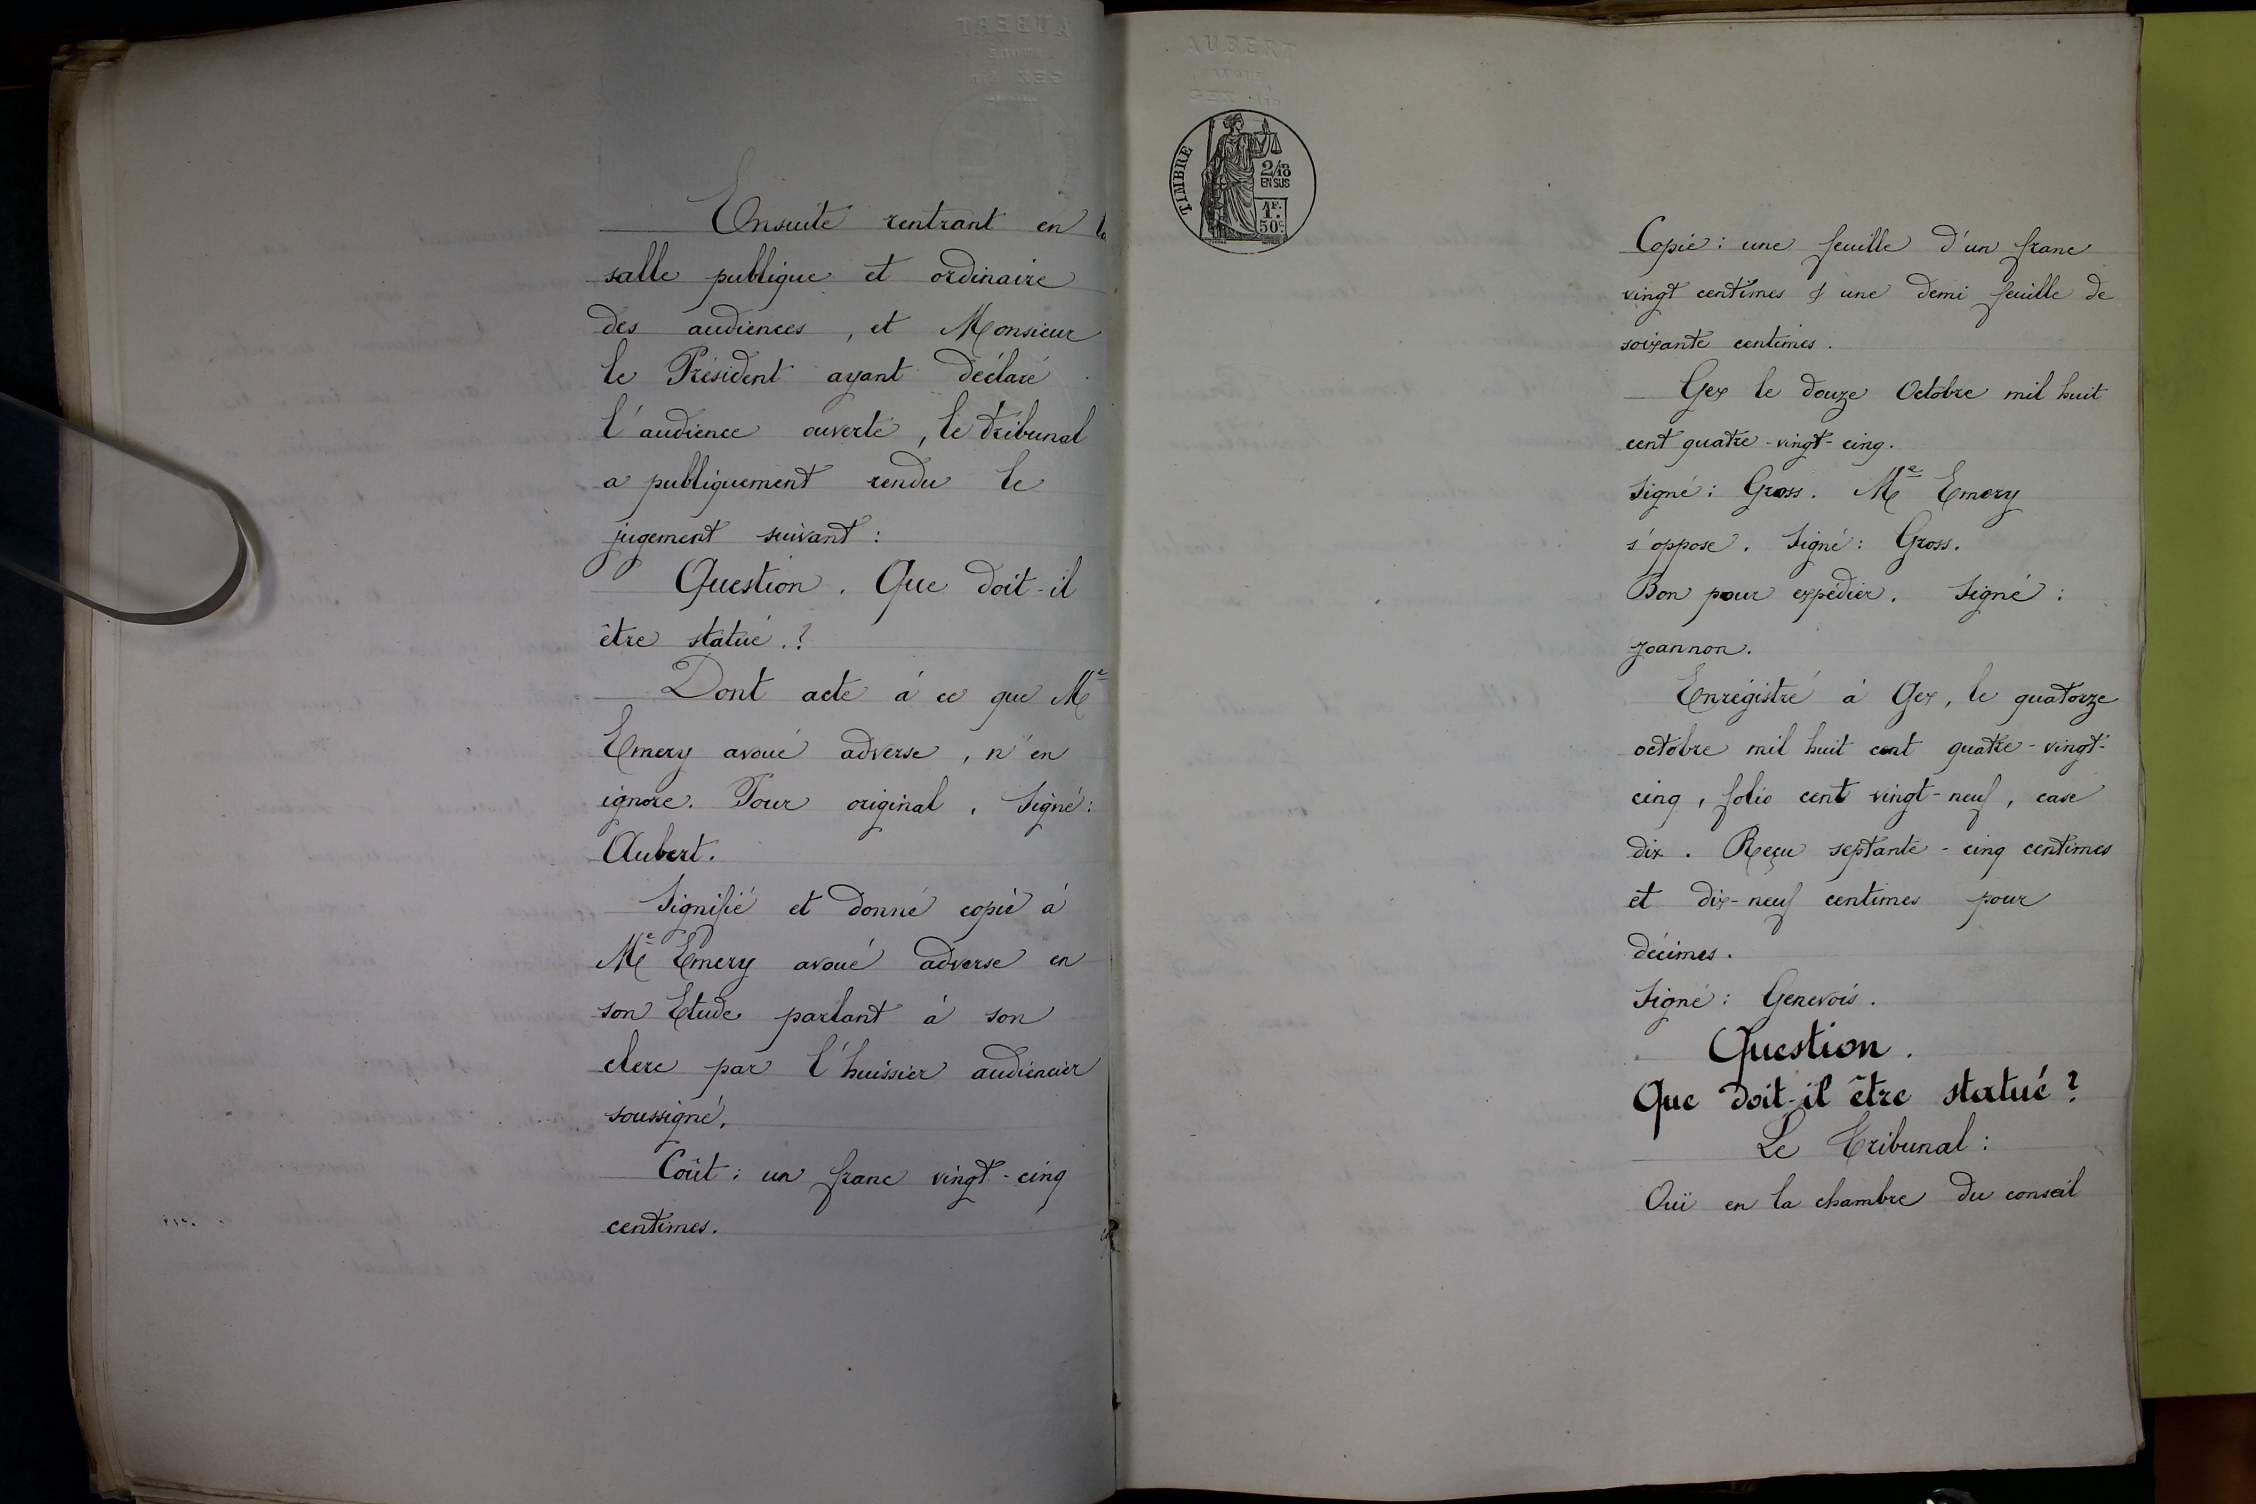 Ensuite rentrant en la
salle publique et ordinaire
des audiences, et Monsieur
le Président ayant déclaré
l'audience ouverte, le tribunal
a publiquement rendu le
jugement suivant :
Question. Que doit-il
être statué. ?
Dont acte à ce que Me
Emery avoué adverse, n'en
ignore. Pour original. Signé :
Aubert.
Signifié et donné copie à
Me Emery avoué adverse en
son Etude parlant à son
clerc par l'huissier audiencier
soussigné.
Coût : un franc vingt-cinq
centimes.
AUBERT
GEX
TIMBRE
2/10
EN SUS
1F.
50c.
Copie : une feuille d'un franc
vingt centimes & une demi feuille de
soixante centimes.
Gex le douze Octobre mil huit
cent quatre-vingt-cinq.
Signé : Gross. Me Emery
s'oppose. Signé : Gross.
Bon pour expédier. Signé :
Joannon.
Enregistré à Gex, le quatorze
octobre mil huit cent quatre-vingt-
cinq, folio cent vingt-neuf, case
dix. Reçu septante-cinq centimes
et dix-neuf centimes pour
décimes.
Signé : Genevois.
Question.
Que doit-il être statué ?
Le Tribunal :
Ouï en la chambre du conseil